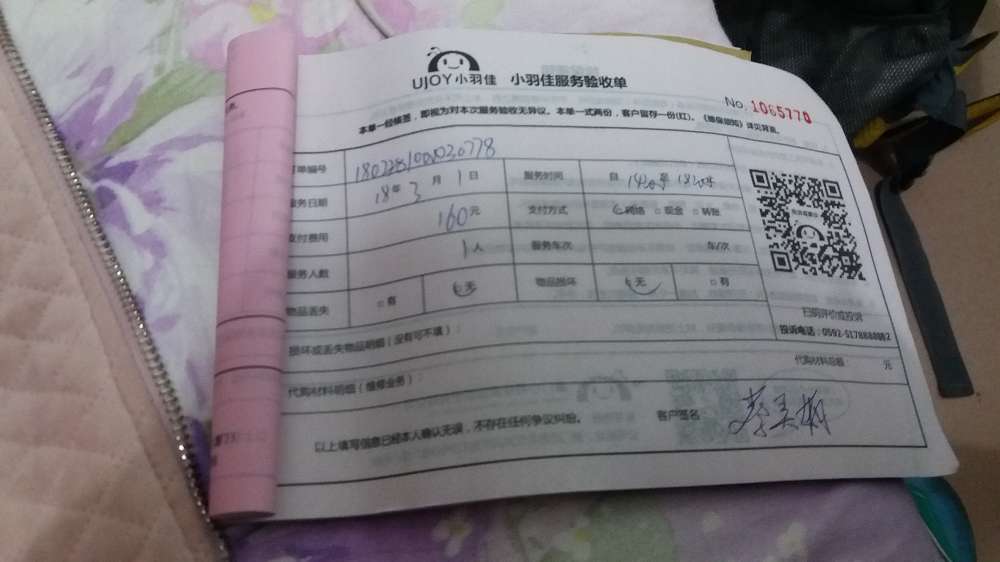 UJOY小羽佳 小羽佳服务验收单
No. 1065770
本单一经签签，即视为对本次服务验收无异议。本单一式两份，客户留存一份(红)。《 》详见背面。
单编号
务日期 18年 3月 1日 服务时间 自
支付费用 160元 支付方式 网络 □现金 □转账
服务人数 1人 服务车次 车/次
物品丢失 □有 无 物品损坏 无 □有
损坏或丢失物品明细（没有可不填）：
扫码评价或投诉
投诉电话：0592-5178888转2
代购材料明细（维修业务）： 代购材料总额 元
以上填写信息已经本人确认无误，不存在任何争议纠纷。 客户签名